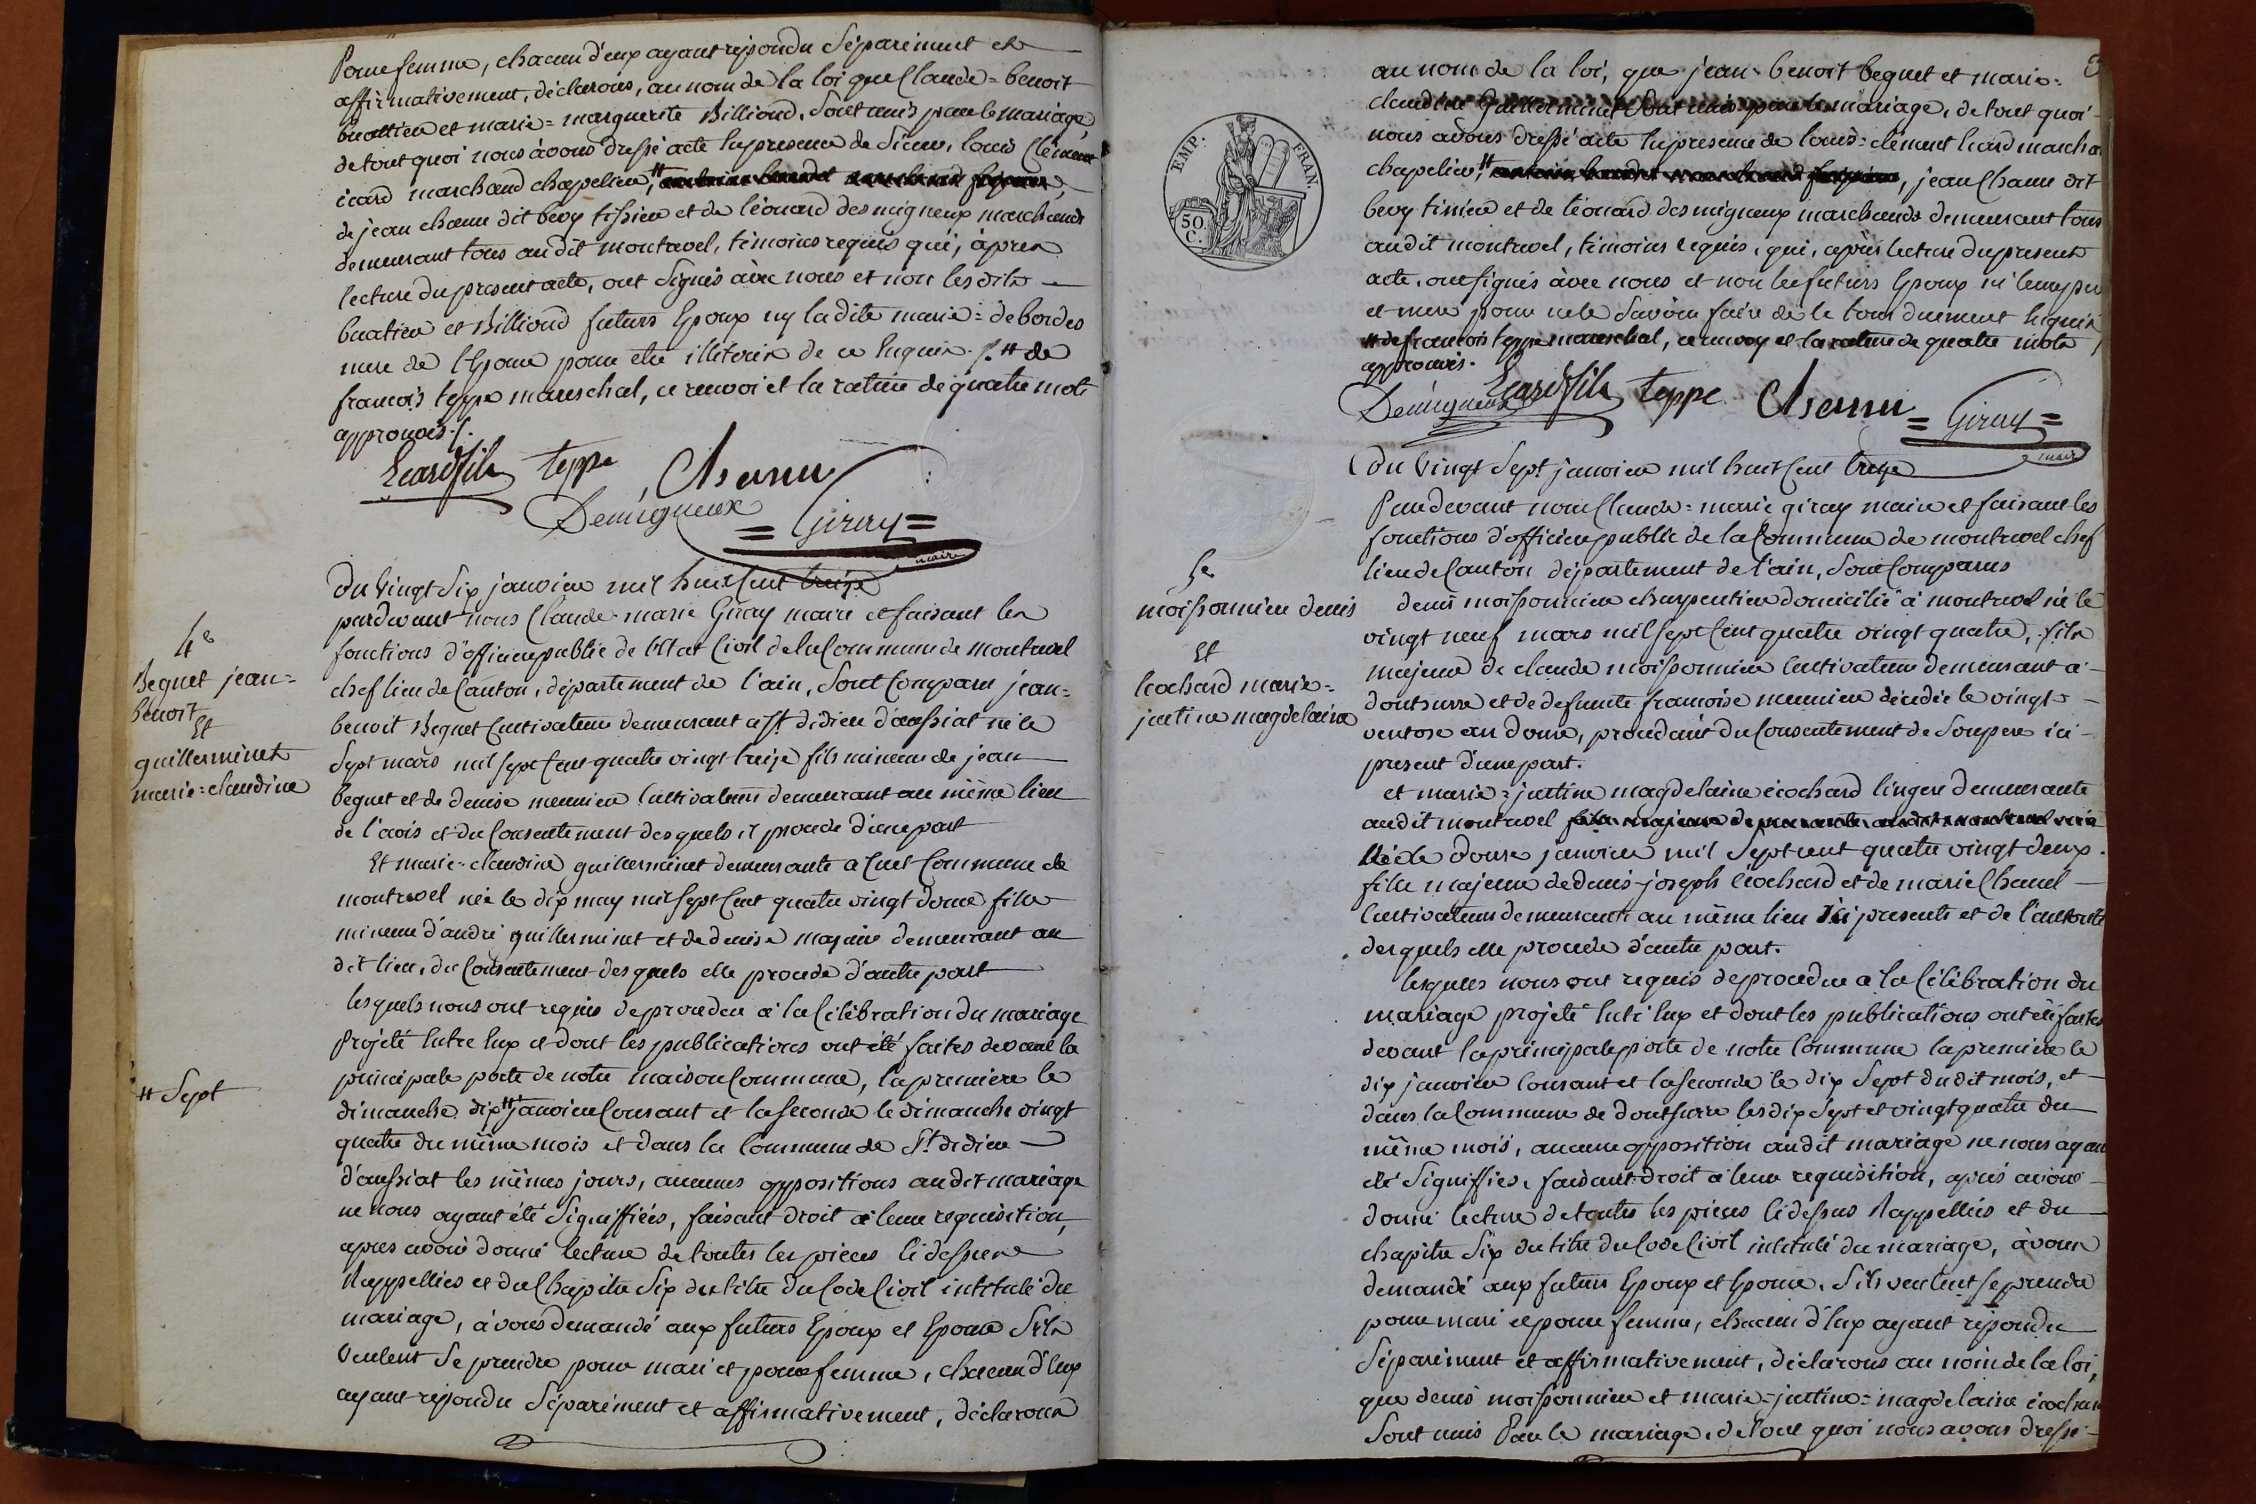 Pour femme, chacun d'eux ayant repondu Séparément et
affirmativement, déclarons, au nom de la loi que Claude = benoit
et marie = marguerite Billioud, Sont unis par le mariage,
de tout quoi nous avons dressé acte En presence de Sieurs, louis Clément
écard marchand chapelier, #
de jean chanu dit bevy tissier et de léonard desmigneux marchands
demeurant tous audit montrevel, témoins requis qui, après
lecture du present acte, ont Signés avec nous et non lesdits
et Billioud futurs Epoux ny ladite marie = debordes
mere de l'Epoux pour etre illitérés de ce Enquis ./. # de
francois teppe mareschal, ce renvoi et la rature de quatre mots
approuvés ./.
Ecard fils teppe Chanu
Demigneux = Giray =
maire
Du Vingt Six janvier mil huit Cent treize
pardevant nous Claude-marie Giray maire et faisant les
fonctions d'officier public de l'Etat Civil de la Commune de montrevel
chef lieu de Canton, département de l'ain, Sont Comparu jean =
benoit Beguet Cultivateur demeurant a St. didier d'aussiat né le
Sept mars mil sept Cent quatre vingt treize fils mineur de jean
beguet et de denise meunier Cultivateurs demeurant au même lieu
de l'avis et du Consentement desquels il procede d'une part
Et marie-claudine guillerminet demeurante a Cuet Commune de
montrevel née le dix may mil sept Cent quatre vingt douze fille
mineure d'andré guillerminet et de denise demeurant au
dit lieu, du Consentement desquels elle procede d'autre part
lesquels nous ont requis de proceder a la Célébration du mariage
Projété Entre Eux et dont les publications ont été faites devant la
principale porte de notre maison Commune, la premiere le
dimanche dix # janvier Courant et la Seconde le dimanche vingt
quatre du même mois et dans la Commune de St. didier
d'aussiat les mêmes jours, aucunes oppositions audit mariage
ne nous ayant été Signiffiées, faisant droit a leur requisition,
apres avoir donné lecture de toutes les pieces Cidessus
Rappellées et du Chapitre Six du titre du Code Civil intitulé du
mariage, avons demandé aux futurs Epoux et Epouse S'ils
Veulent Se prendre pour mari et pour femme, chacun d'Eux
ayant repondu Séparément et affirmativement, déclarons
4e
Beguet jean =
benoit
Et
guillerminet
marie = claudine
# Sept
au nom de la loi, que jean-benoit beguet et marie =
claudine Guillerminet Sont unis par le mariage, de tout quoi
nous avons dressé acte En presence de louis = clément Ecard
chapelier, # jean Chanu dit
bevy tissier et de léonard desmigneux marchands demeurant tous
audit montrevel, témoins requis, qui, après lecture du present
acte, ont signés avec nous et non les futurs Epoux ni leurs
et mere pour ne le Savoir faire de le tout duement Enquis
# de francois teppe mareschal, ce renvoy et la rature de quatre mots
approuvés.
Demigneux Ecard fils teppe Chanu = Giray =
maire
EMP: FRAN.
50
C.
Du Vingt Sept janvier mil huit Cent treize
Pardevant nous Claude = marie giray maire et faisant les
fonctions d'officier public de la Commune de montrevel chef
lieu de Canton département de l'ain, Sont Comparus
denis moissonnier charpentier domicilié a montrevel né le
vingt neuf mars mil sept Cent quatre vingt quatre, fils
majeur de claude moissonnier Cultivateur demeurant a
dontsurre et de defunte francoise meunier décédée le vingt
ventose an douze, procedant du Consentement de Son pere ici
present d'une part.
et marie = justine magdelaine écochard lingere demeurante
audit montrevel
Née le douze janvier mil Sept cent quatre vingt deux.
fille majeure de denis-joseph écochard et de marie Chanel
Cultivateurs demeurants au même lieu ici presents et de l'autorité
desquels elle procede d'autre part.
lesquels nous ont requis de proceder a la Célébration du
mariage projété Entre Eux et dont les publications ont été faites
devant la principale porte de notre Commune la premiere le
dix janvier Courant et la Seconde le dix Sept du dit mois, et
dans la Commune de dontsurre les dix Sept et vingt quatre du
même mois, aucune opposition audit mariage ne nous ayant
été Signiffiée, faisant droit a leur requisition, après avoir
donné lecture de toutes les pieces Cidessus Rappellées et du
chapitre Six du titre du Code Civil intitulé du mariage, avons
demandé aux futurs Epoux et Epouse, S'ils veulent Se prendre
pour mari et pour femme, chacun d'Eux ayant repondu
Séparément et affirmativement, déclarons au nom de la loi,
que denis moissonnier et marie-justine = magdelaine écochard
Sont unis Par le mariage, de tout quoi nous avons dressé
5e
moissonnier denis
Et
Ecochard marie =
justine magdelaine